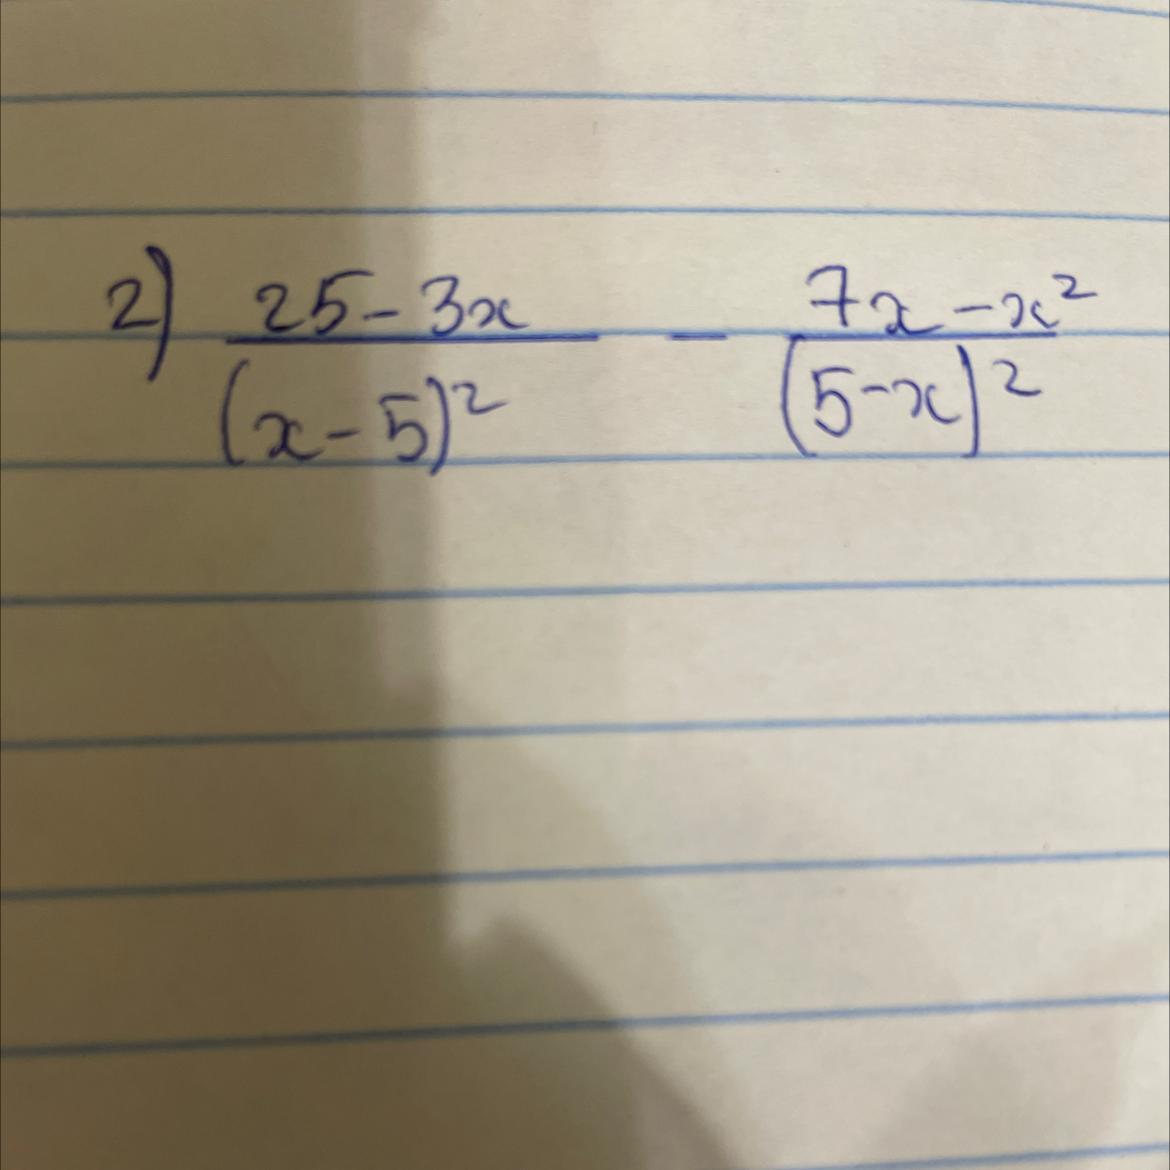 2) 25-3x / (x-5)² - 7x-x² / (5-x)²